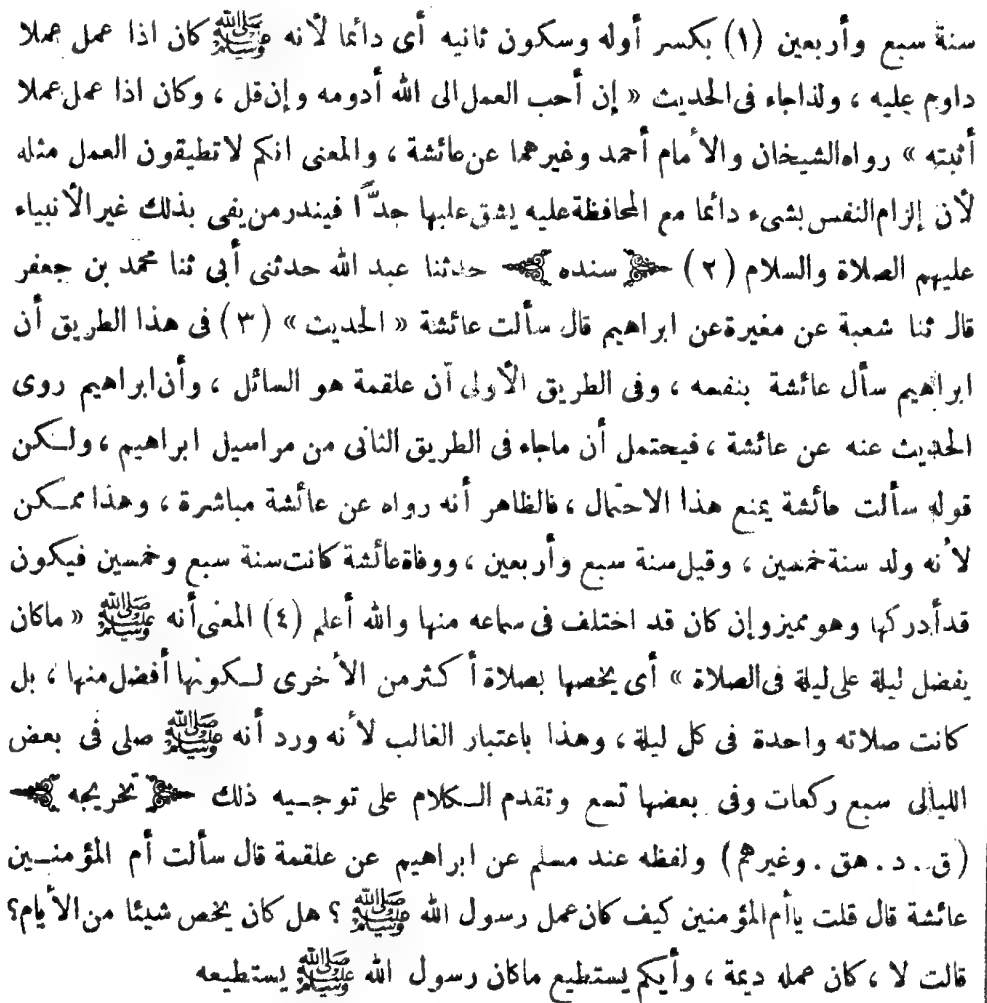 سنة سبع وأربعين (١) بكسر أوله وسكون ثانيه أى دائما لأنه ﷺ كان اذا عمل عملا
داوم عليه ، ولذاجاء فى الحديث « إن أحب العمل الى الله أدومه وإن قل ، وكان اذا عمل عملا
أثبته » رواه الشيخان والأمام أحمد وغيرهما عن عائشة ، والمعنى انكم لاتطيقون العمل مثله
لأن إلزام النفس بشىء دائما مع المحافظة عليه يشق عليها جدًّا فيندر من يفى بذلك غير الأنبياء
عليهم الصلاة والسلام (٢) سنده حدثنا عبد الله حدثنى أبى ثنا محمد بن جعفر
قال ثنا شعبة عن مغيرة عن ابراهيم قال سألت عائشة « الحديث » (٣) فى هذا الطريق أن
ابراهيم سأل عائشة بنفسه ، وفى الطريق الأولى أن علقمة هو السائل ، وأن ابراهيم روى
الحديث عنه عن عائشة ، فيحتمل أن ماجاء فى الطريق الثانى من مراسيل ابراهيم ، ولـكن
قوله سألت عائشة يمنع هذا الاحتمال ، فالظاهر أنه رواه عن عائشة مباشرة ، وهذا ممـكن
لأنه ولد سنة خمسين ، وقيل سنة سبع وأربعين ، ووفاة عائشة كانت سنة سبع وخمسين فيكون
قد أدركها وهو مميز وإن كان قد اختلف فى سماعه منها والله أعلم (٤) المعنى أنه ﷺ « ماكان
يفضل ليلة على ليلة فى الصلاة » أى يخصها بصلاة أكثر من الأخرى لـكونها أفضل منها ، بل
كانت صلاته واحدة فى كل ليلة ، وهذا باعتبار الغالب لأنه ورد أنه ﷺ صلى فى بعض
الليالى سبع ركعات وفى بعضها تسع وتقدم الـكلام على توجـيه ذلك تخريجه
(ق . د . هق . وغيرهم) ولفظه عند مسلم عن ابراهيم عن علقمة قال سألت أم المؤمنـين
عائشة قال قلت ياأم المؤمنين كيف كان عمل رسول الله ﷺ ؟ هل كان يخص شيئا من الأيام؟
قالت لا ، كان عمله ديمة ، وأيكم يستطيع ماكان رسول الله ﷺ يستطيعه